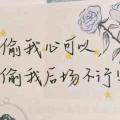 偷我心可以,
偷我后场不行!